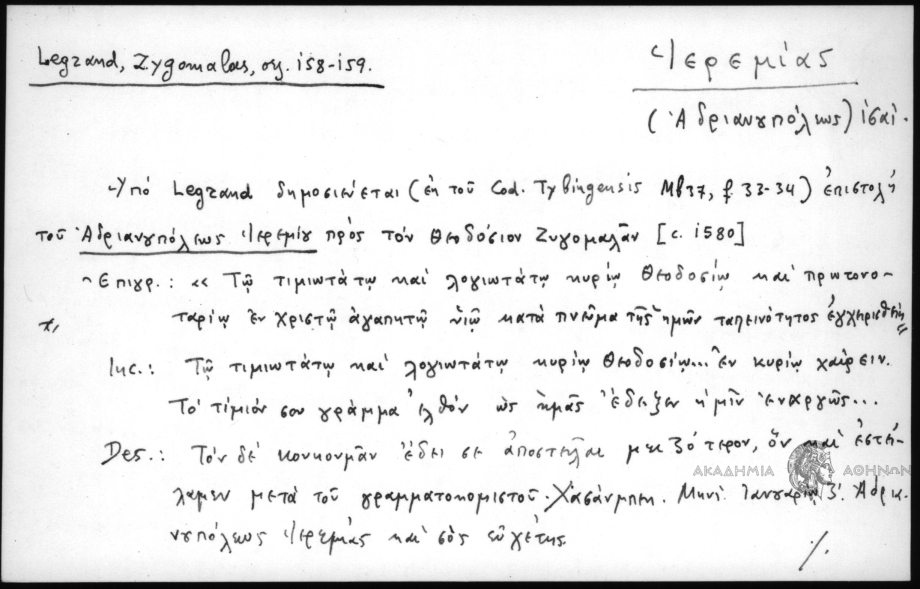 Legrand, Zygomalas, σσ. 158-159.
Ἱερεμίας
(Ἀδριανουπόλεως) ις΄ αἰ.
Ὑπὸ Legrand δημοσιεύεται (ἐκ τοῦ Cod. Tybingensis Mb37, f. 33-34) ἐπιστολὴ
τοῦ Ἀδριανουπόλεως Ἱερεμίου πρὸς τὸν Θεοδόσιον Ζυγομαλᾶν [c. 1580]
Ἐπιγρ.: «Τῷ τιμιωτάτῳ καὶ λογιωτάτῳ κυρίῳ Θεοδοσίῳ καὶ πρωτονο-
ταρίῳ ἐν Χριστῷ ἀγαπητῷ υἱῷ κατὰ πνεῦμα τῆς ἡμῶν ταπεινότητος ἐγχειρισθείη»
Inc.: Τῷ τιμιωτάτῳ καὶ λογιωτάτῳ κυρίῳ Θεοδοσίῳ... ἐν κυρίῳ χαίρειν.
Τὸ τίμιόν σου γράμμα ἐλθὸν ὡς ἡμᾶς ἔδειξεν ἡμῖν ἐναργῶς...
Des.: Τὸν δὲ κουκουμᾶν ἔδει σε ἀποστεῖλαι μειζότερον, ὃν καὶ ἐστεί-
λαμεν μετὰ τοῦ γραμματοκομιστοῦ Χασάνμπεη. Μηνὶ Ἰανουαρίῳ
Ἀδρια-
νουπόλεως Ἱερεμίας καὶ σὸς εὐχέτης.
ΑΚΑΔΗΜΙΑ ΑΘΗΝΩΝ
·/.